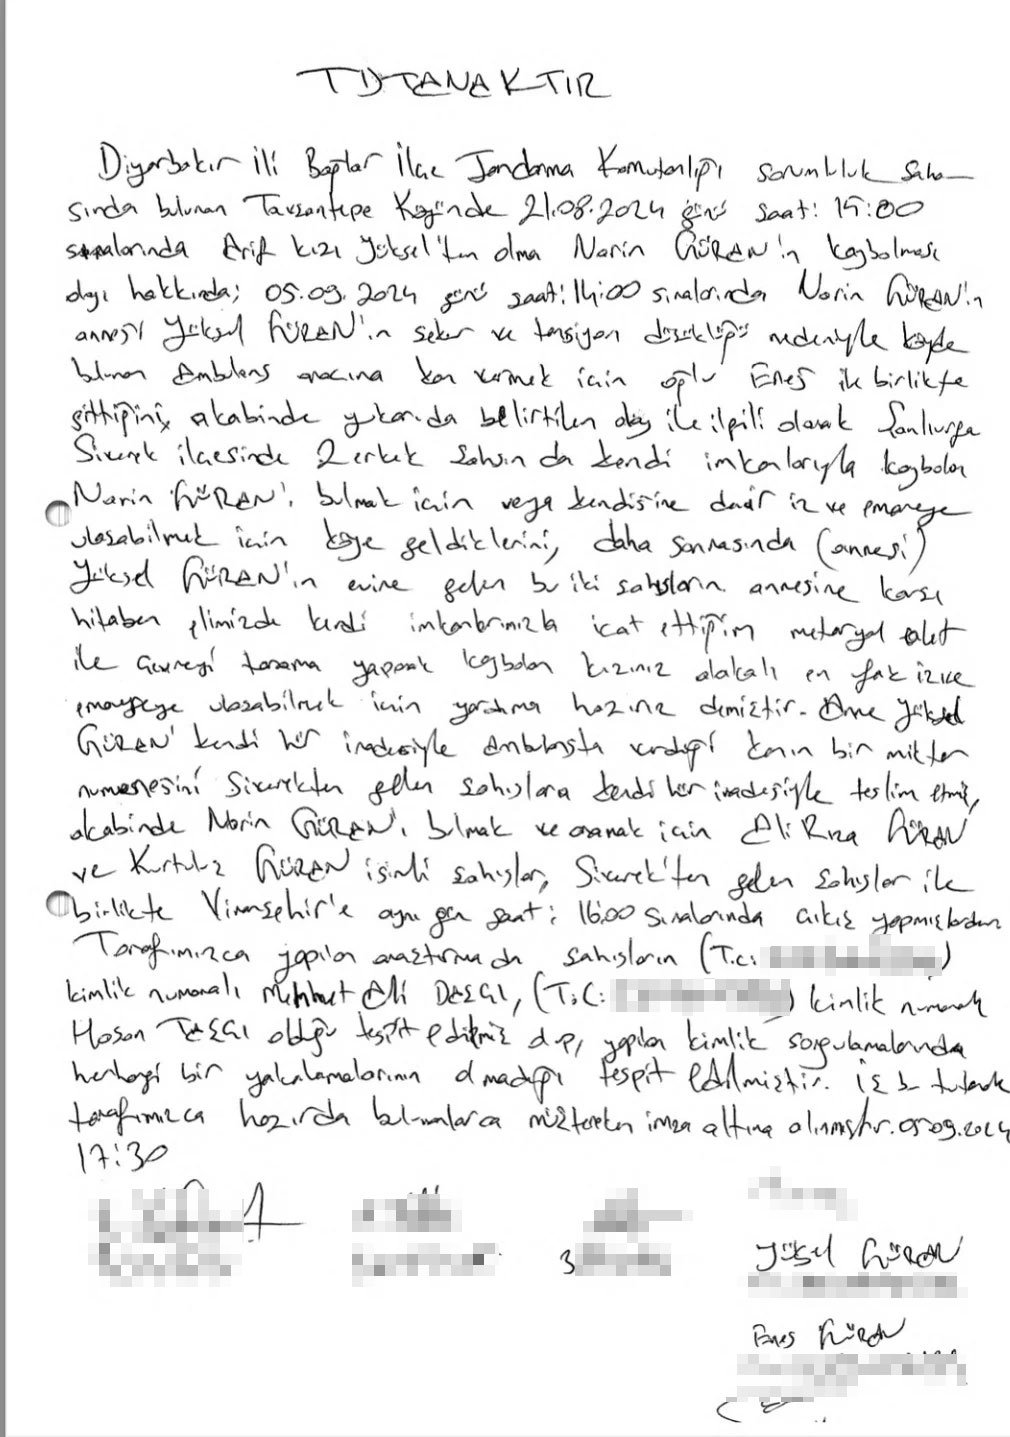 TUTANAKTIR
Diyarbakır İli Bağlar İlçe Jandarma Komutanlığı sorumluluk saha-
sında bulunan Tavşantepe Köyünde 21.08.2024 günü saat: 15:00
sıralarında Arif kızı Yüksel'ten olma Narin GÜRAN'ın kaybolması
olayı hakkında; 05.09.2024 günü saat: 14:00 sıralarında Narin GÜRAN'ın
annesi Yüksel GÜRAN'ın şeker ve tansiyon düşüklüğü nedeniyle köyde
bulunan Ambulans aracına kan vermek için oğlu Enes ile birlikte
gittiğini, akabinde yukarıda belirtilen olay ile ilgili olarak Şanlıurfa
Siverek ilçesinde 2 erkek şahsın da kendi imkanlarıyla kaybolan
Narin GÜRAN'ı bulmak için veya kendisine dair iz ve emareye
ulaşabilmek için köye geldiklerini, daha sonrasında (annesi)
Yüksel GÜRAN'ın evine gelen bu iki şahısların annesine karşı
hitaben elimizde kendi imkanlarımızla icat ettiğim materyal alet
ile çevreyi tarama yaparak kaybolan kızınız alakalı en ufak iz ve
emareye ulaşabilmek için yardıma hazırız demiştir. Anne Yüksel
GÜRAN' kendi hür iradesiyle Ambulansta verdiği kanın bir miktar
numunesini Siverekten gelen şahıslara kendi hür iradesiyle teslim etmiş,
akabinde Narin GÜRAN'ı bulmak ve aramak için Ali Rıza GÜRAN
ve Kurtuluş GÜRAN isimli şahıslar, Siverek'ten gelen şahıslar ile
birlikte Viranşehir'e aynı gün saat: 16:00 sıralarında çıkış yapmışlardır.
Tarafımızca yapılan araştırmada şahısların (T.C:
kimlik numaralı Mehmet Ali DAŞÇI, (T.C: ) kimlik numaralı
Hasan TAŞÇI olduğu tespit edilmiş olup, yapılan kimlik sorgulamalarında
herhangi bir yakalamalarının olmadığı tespit edilmiştir. İş bu tutanak
tarafımızca hazırda bulunanlarca müştereken imza altına alınmıştır. 05.09.2024
17:30
Yüksel GÜRAN
Enes GÜRAN